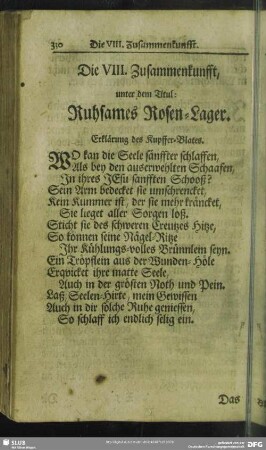 330 Die VIII. Zusammenkunfft.
Die VIII. Zusammenkunfft,
unter dem Titul:
Ruhsames Rosen-Lager.
Erklärung des Kupffer-Blates.
WO kan die Seele sänffter schlaffen,
Als bey den auserwehlten Schaafen,
In ihres JEsu sanfften Schooß?
Sein Arm bedecket sie umschrencket,
Kein Kummer ist, der sie mehr kräncket,
Sie lieget aller Sorgen loß.
Sticht sie des schweren Creutzes Hitze,
So können seine Nägel-Ritze
Ihr Kühlungs-volles Brünnlein seyn.
Ein Tröpflein aus der Wunden-Höle
Erqvicket ihre matte Seele,
Auch in der grösten Noth und Pein.
Laß Seelen-Hirte, mein Gewissen
Auch in dir solche Ruhe geniessen,
So schlaff ich endlich selig ein.
Das
SLUB
DFG